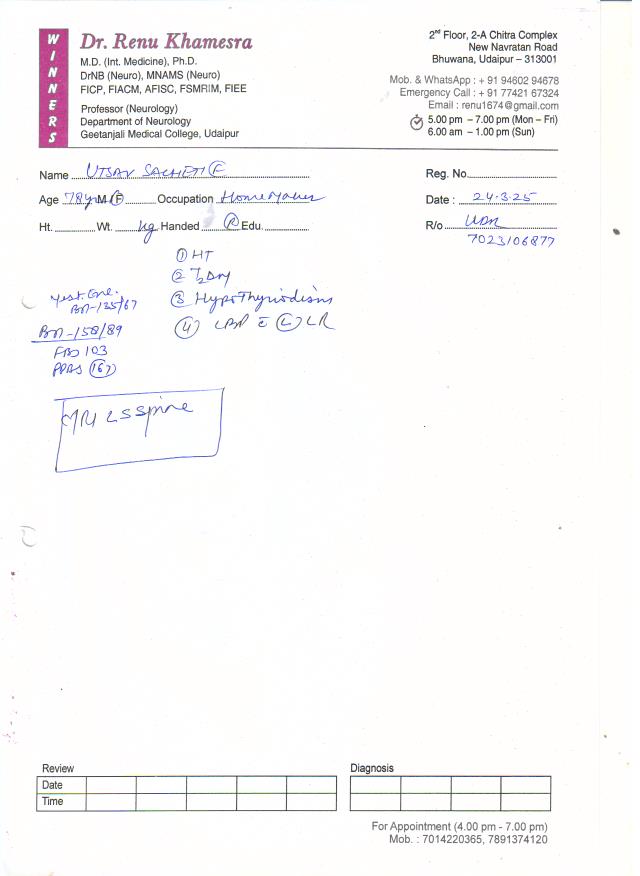 WINNERS
Dr. Renu Khamesra
M.D. (Int. Medicine), Ph.D.
DrNB (Neuro), MNAMS (Neuro)
FICP, FIACM, AFISC, FSMRIM, FIEE
Professor (Neurology)
Department of Neurology
Geetanjali Medical College, Udaipur
2nd Floor, 2-A Chitra Complex
New Navratan Road
Bhuwana, Udaipur – 313001
Mob. & WhatsApp : + 91 94602 94678
Emergency Call : + 91 77421 67324
Email : renu1674@gmail.com
5.00 pm – 7.00 pm (Mon – Fri)
6.00 am – 1.00 pm (Sun)
Name UTSAV SACHETI F Reg. No.
Age 78yrs M/F Occupation Homemaker Date : 24-3-25
Ht. Wt. kg Handed R Edu. R/o UDR
7023106877
① HT
② T2DM
③ Hypothyriodism
④ LBP c Ⓛ LR
BP-135/67
BP-158/89
FBS 103
PPBS 167
MRI LS Spine
Review Diagnosis
Date
Time
For Appointment (4.00 pm - 7.00 pm)
Mob. : 7014220365, 7891374120